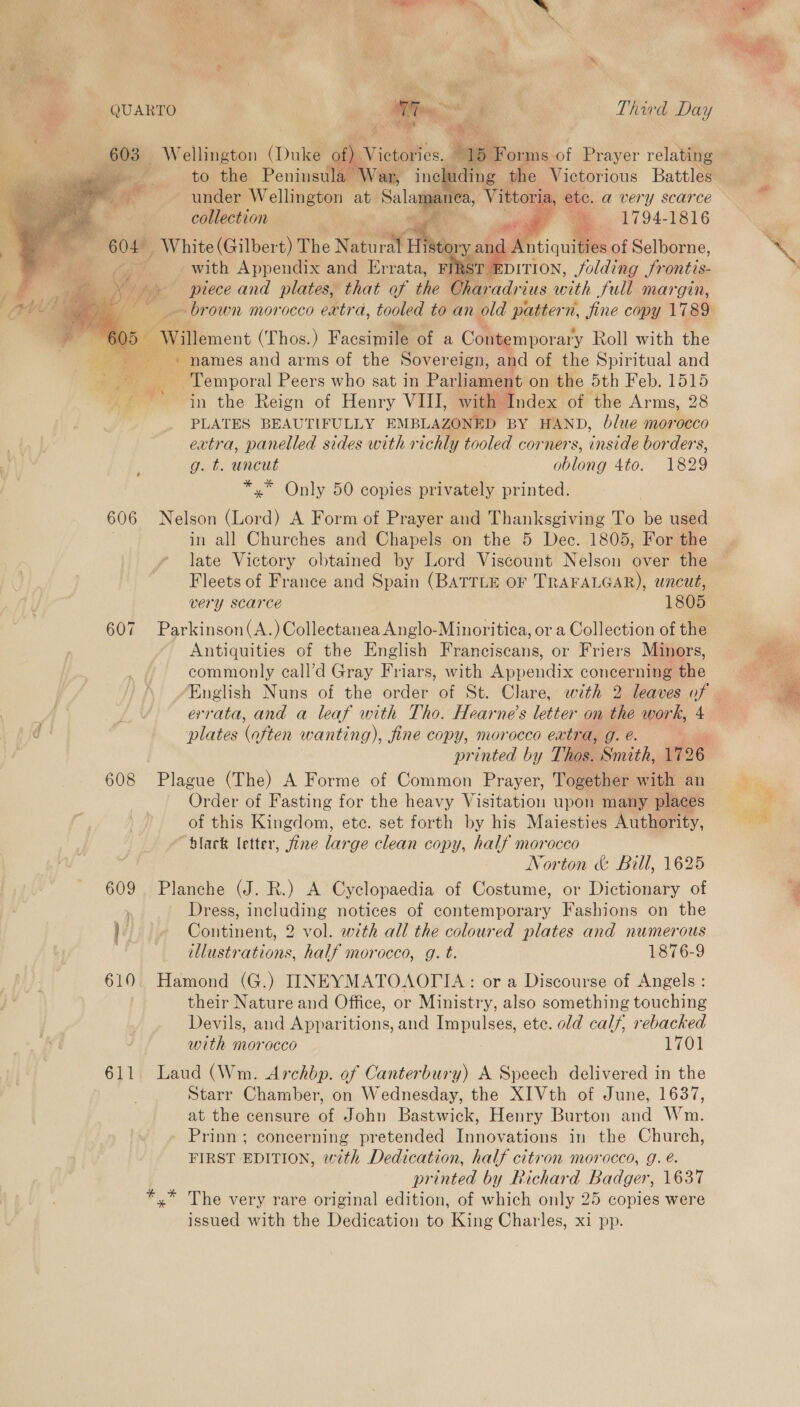 QUARTO 77 Third Day
603 Wellington (Duke of) Victories. 15 Forms of Prayer relating
to the Peninsula War, including the Victorious Battles
under Wellington at Salamanca, Vittoria, etc. a very scarce
collection 1794-1816
604 White (Gilbert) The Natural History and Antiquities of Selborne,
with Appendix and Errata, FIRST EDITION, folding frontis-
piece and plates, that of the Charadrius with full margin,
brown morocco extra, tooled to an old pattern, fine copy 1789
605 Willement (Thos.) Facsimile of a Contemporary Roll with the
names and arms of the Sovereign, and of the Spiritual and
Temporal Peers who sat in Parliament on the 5th Feb. 1515
in the Reign of Henry VIII, with Index of the Arms, 28
PLATES BEAUTIFULLY EMBLAZONED BY HAND, blue morocco
extra, panelled sides with richly tooled corners, inside borders,
g. t. uncut oblong 4to. 1829
*** Only 50 copies privately printed.
606 Nelson (Lord) A Form of Prayer and Thanksgiving To be used
in all Churches and Chapels on the 5 Dec. 1805, For the
late Victory obtained by Lord Viscount Nelson over the
Fleets of France and Spain (BATTLE OF TRAFALGAR), uncut,
very scarce 1805
607 Parkinson (A.) Collectanea Anglo-Minoritica, or a Collection of the
Antiquities of the English Franciscans, or Friers Minors,
commonly call'd Gray Friars, with Appendix concerning the
English Nuns of the order of St. Clare, with 2 leaves of
errata, and a leaf with Tho. Hearne's letter on the work, 4
plates (often wanting), fine copy, morocco extra, g. e.
printed by Thos. Smith, 1726
608 Plague (The) A Forme of Common Prayer, Together with an
Order of Fasting for the heavy Visitation upon many places
of this Kingdom, etc. set forth by his Maiesties Authority,
black letter, fine large clean copy, half morocco
Norton & Bill, 1625
609 Planche (J. R.) A Cyclopaedia of Costume, or Dictionary of
Dress, including notices of contemporary Fashions on the
Continent, 2 vol. with all the coloured plates and numerous
illustrations, half morocco, g. t. 1876-9
610 Hamond (G.) ΠΝΕΥΜΑΤΟΛΟΓΙΑ: or a Discourse of Angels:
their Nature and Office, or Ministry, also something touching
Devils, and Apparitions, and Impulses, etc. old calf, rebacked
with morocco 1701
611 Laud (Wm. Archbp. of Canterbury) A Speech delivered in the
Starr Chamber, on Wednesday, the XIVth of June, 1637,
at the censure of John Bastwick, Henry Burton and Wm.
Prinn; concerning pretended Innovations in the Church,
FIRST EDITION, with Dedication, half citron morocco, g. e.
printed by Richard Badger, 1637
*** The very rare original edition, of which only 25 copies were
issued with the Dedication to King Charles, xi pp.